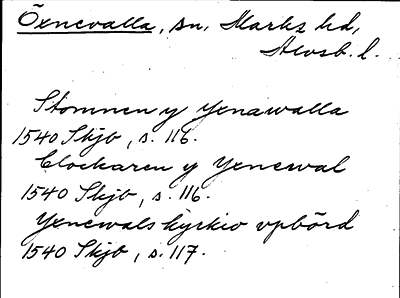 Öxnevalla, sn, Marks hd,
Älvsb. l.
Stomnen y yxnawalla
1540 Skjb, s. 116.
Clockaren y yxnewal
1540 Skjb, s. 116.
Yxnewals kyrkio vpbörd
1540 Skjb, s. 117.